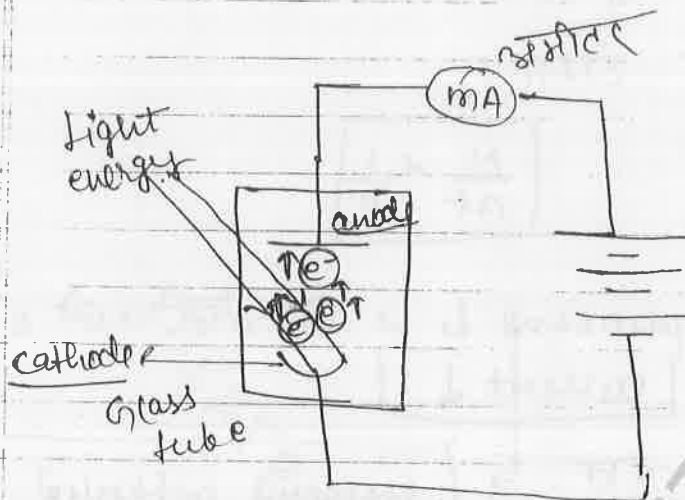 अमीटर
mA
Light
energy
anode
e-
e
e
cathode
Glass
tube